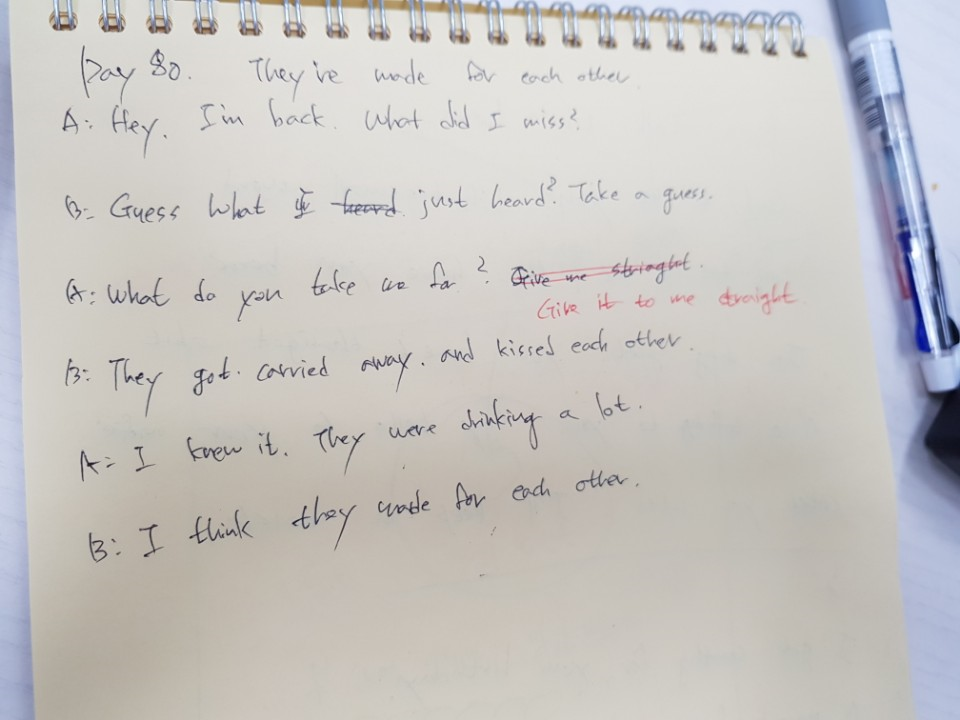 Day 80. They're made for each other.
A: Hey. I'm back. What did I miss?
B: Guess what I just heard? Take a guess.
A: What do you take me for?
Give it to me straight
B: They got carried away. and kissed each other.
A: I knew it. They were drinking a lot.
B: I think they made for each other.